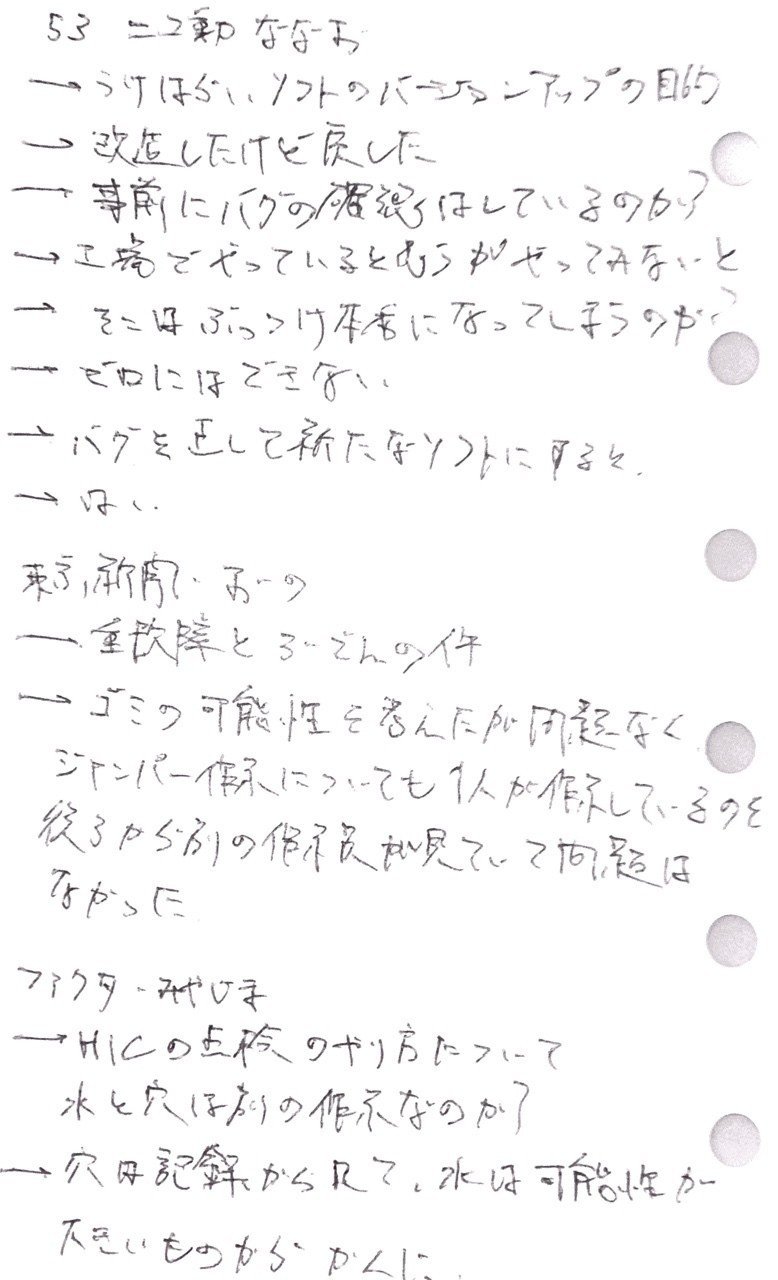 53 ニコ動 ななお
→ うけばらい ソフトのバージョンアップの目的
→ 改造したけど戻した
→ 事前にバグの確認はしているのか?
→ 工場でやっていると思うがやってみないと
→ そこはぶっつけ本番になってしまうのか?
→ ゼロにはできない
→ バグを直して新たなソフトにすると.
→ はい
東京新聞・おーの
→ 重故障と ろーでんの件
→ ゴミの可能性を考えたが問題なく
ジャンパー作業についても1人が作業しているのを
後ろから別の作業員が見ていて問題は
なかった
ファクタ・みやじま
→ HICの点検のやり方について
水と穴は別の作業なのか?
→ 穴は記録から見て、水は可能性が
大きいものから かくに